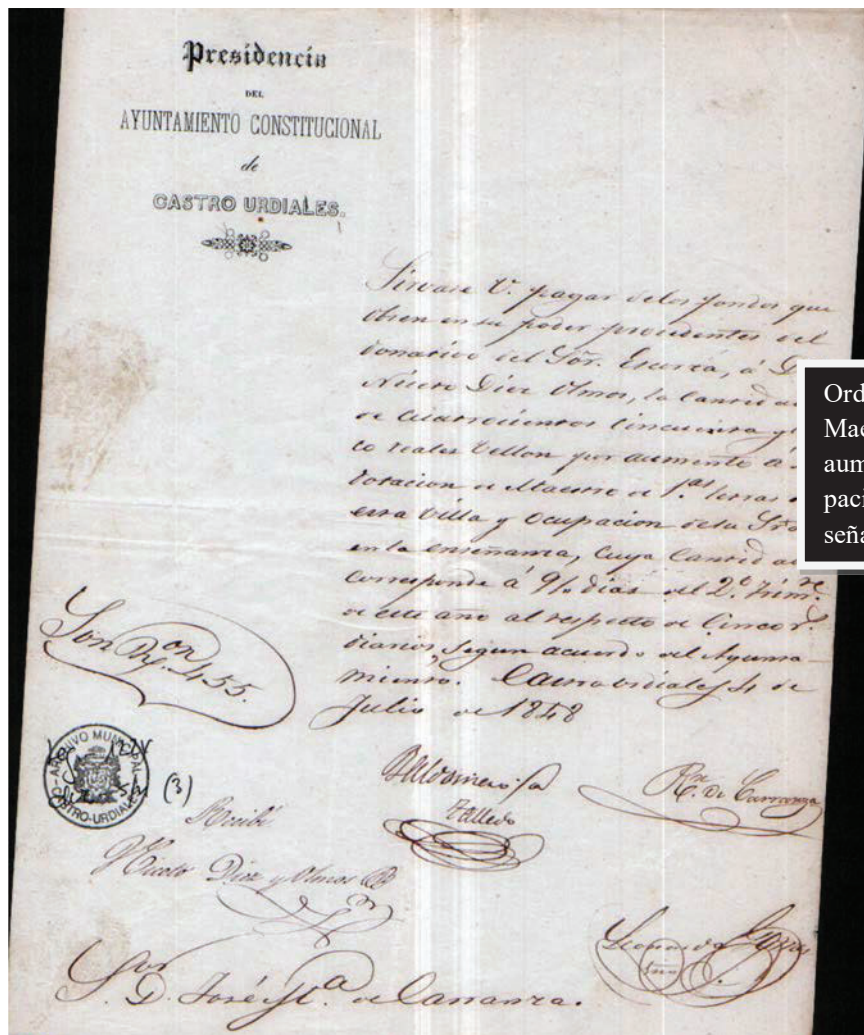 Presidencia
DEL
AYUNTAMIENTO CONSTITUCIONAL
de
CASTRO URDIALES.
Sirvase V. pagar delos fondos que
obren en su poder procedentes del
donativo del Sôr. Escorza, á D
Díez Olmos, la cantidad
de cuatrocientos cincuenta y
co reales vellon por aumento á
dotacion de Maestro de 1.as letras
esta villa y ocupacion dela Sra
en la enseñanza, cuya cantidad
corresponde á 91 dias del 2.º trim.re
de este año al respecto de cinco r.s
diarios, segun acuerdo del Ayunta-
miento. Castrourdiales 4 de
Julio de 1848
Son Rs. on 455.
ARCHIVO MUNICIPAL
CASTRO-URDIALES
(3)
Recibí
Díez y Olmos
Talledo
Rn. de Carranza
Leonardo
Sor
D. José M.a de Carranza.
Ord
Mae
aum
paci
seña